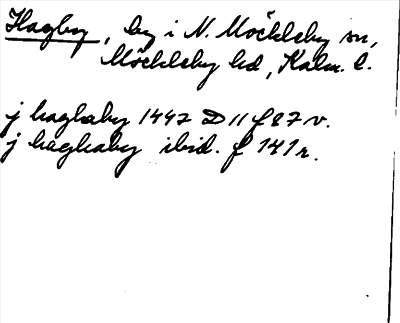 Hagby, by i N. Möckleby sn,
Möckleby hd, Kalm. l.
j haghaby 1447 D 11 f 87 v.
j haghaby ibid. f 141 r.